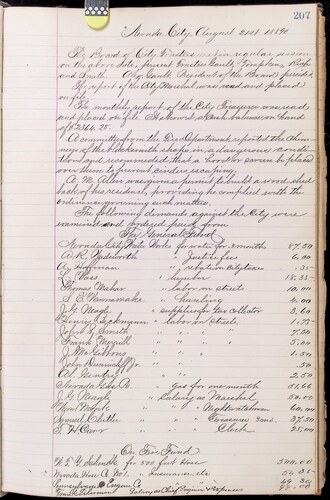 207
Nevada City, August 21st 1890
The Board of City Trustees met in regular session
on the above date, present Trustees Gault, Tompkins, Rich
and Smith. Geo. Gault President of the Board presided.
The report of the City Marshal was read and placed
on file.
The monthly report of the City Treasurer was read
and placed on file. It showed a Cash balance on hand
of $2364.25.
A committee from the Fire Department reported the chim-
neys of the blacksmith shops in a dangerous condi-
tion and recommended that a hood or screen be placed
over them to prevent cinders escaping.
A. M. Allen was given permit to build a wood shed
back of his residence, providing he complied with the
ordinance governing such matters.
The following demands against the City were
examined and ordered paid from
The General Fund
Nevada City Water Works for water for 2 months 87.50
A. R. Wadsworth " Justice fees 6.00
A. Hoffman " rebate on City taxes
" lumber 18.35
Thomas " labor on streets 10.00
" hauling 4.00
J. G. Neagle " supplies for tax collector 3.60
Henry " labor on streets
John J. Smith " " " 7.50
Frank Merrill " " " 5.00
J. McGibbons " " " 1.50
John Jr. " " " .50
Al. Gentry " " " 2.50
Nevada Gas Co. " gas for one month 51.66
G. Neagle " Salary as Marshal 50.00
" " " Nightwatchman 60.00
Samuel " " " Treasurer 2 mos. 37.50
T. H. Carr " " " Clerk 25.00
On Fire Fund
for 500 feet hose 500.00
Nevada Hose Co. No 1.
Pennsylvania Engine Co
Salary as Chief Engineer & expenses